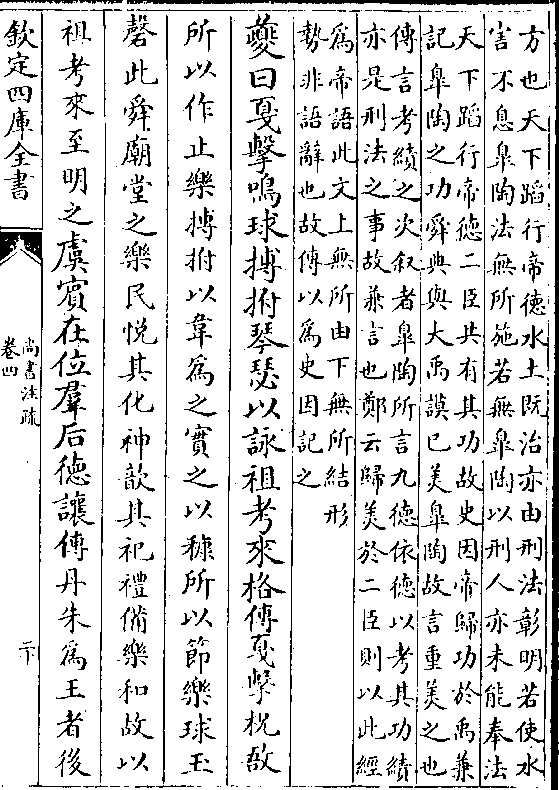 方也天下蹈行帝徳水土既治亦由刑法彰明若使水
害不息臯陶法無所施若無臯陶以刑人亦未能奉法
天下蹈行帝徳二臣共有其功故史因帝歸功於禹兼
記臯陶之功舜典與大禹謨已美臯陶故言重美之也
傳言考績之次叙者臯陶所言九徳依徳以考其功績
亦是刑法之事故兼言也鄭云歸美於二臣則以此經
為帝語此文上無所由下無所結形
勢非語辭也故傳以為史因記之
夔曰戞擊鳴球搏拊琴瑟以詠祖考來格傳戞擊柷敔
所以作止樂搏拊以韋為之實之以糠所以節樂球玉
磬此舜廟堂之樂民悦其化神歆其祀禮備樂和故以
祖考來至明之虞賓在位羣后徳讓傳丹朱為王者後
欽定四庫全書
尚書注疏
卷四
二下